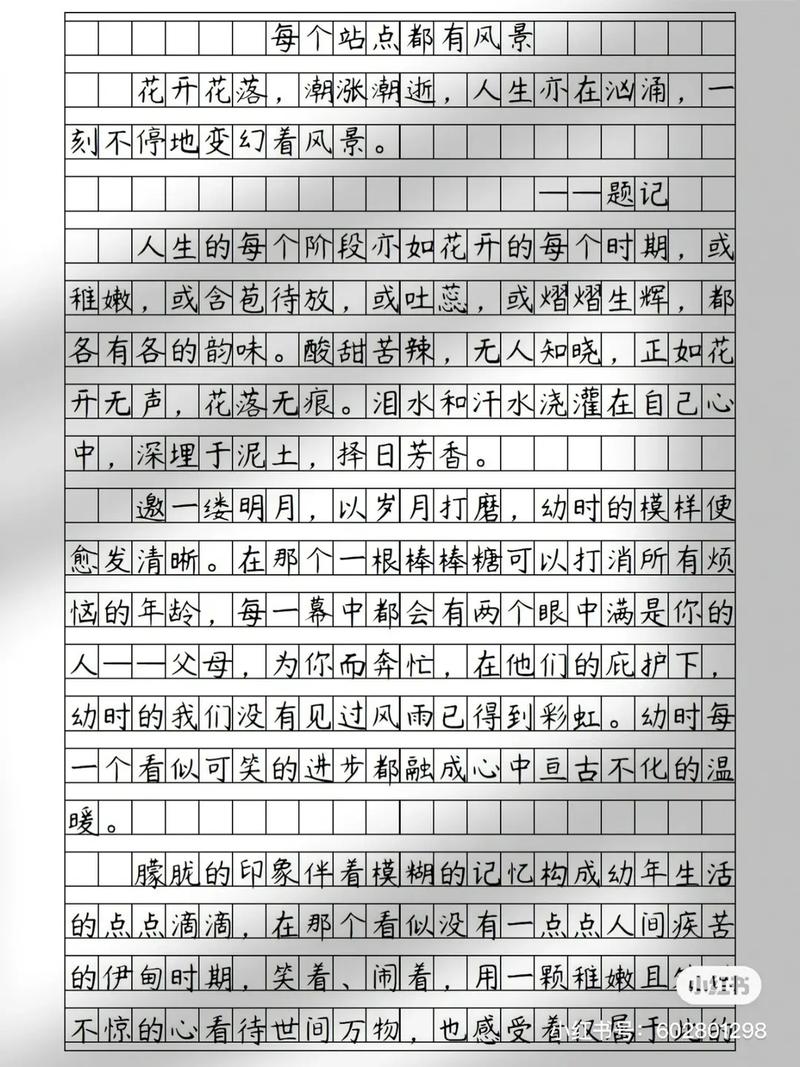 每个站点都有风景
花开花落，潮涨潮逝，人生亦在汹涌，一
刻不停地变幻着风景。
——题记
人生的每个阶段亦如花开的每个时期，或
稚嫩，或含苞待放，或吐蕊，或熠熠生辉，都
各有各的韵味。酸甜苦辣，无人知晓，正如花
开无声，花落无痕。泪水和汗水浇灌在自己心
中，深埋于泥土，择日芳香。
邀一缕明月，以岁月打磨，幼时的模样便
愈发清晰。在那个一根棒棒糖可以打消所有烦
恼的年龄，每一幕中都会有两个眼中满是你的
人——父母，为你而奔忙，在他们的庇护下，
幼时的我们没有见过风雨已得到彩虹。幼时每
一个看似可笑的进步都融成心中亘古不化的温
暖。
朦胧的印象伴着模糊的记忆构成幼年生活
的点点滴滴，在那个看似没有一点点人间疾苦
的伊甸时期，笑着、闹着，用一颗稚嫩且
不惊的心看待世间万物，也感受着仅属于此的
小红书
小红书号：602801298